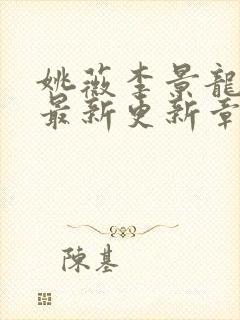 姚薇李景龍
最新更新章
陳基